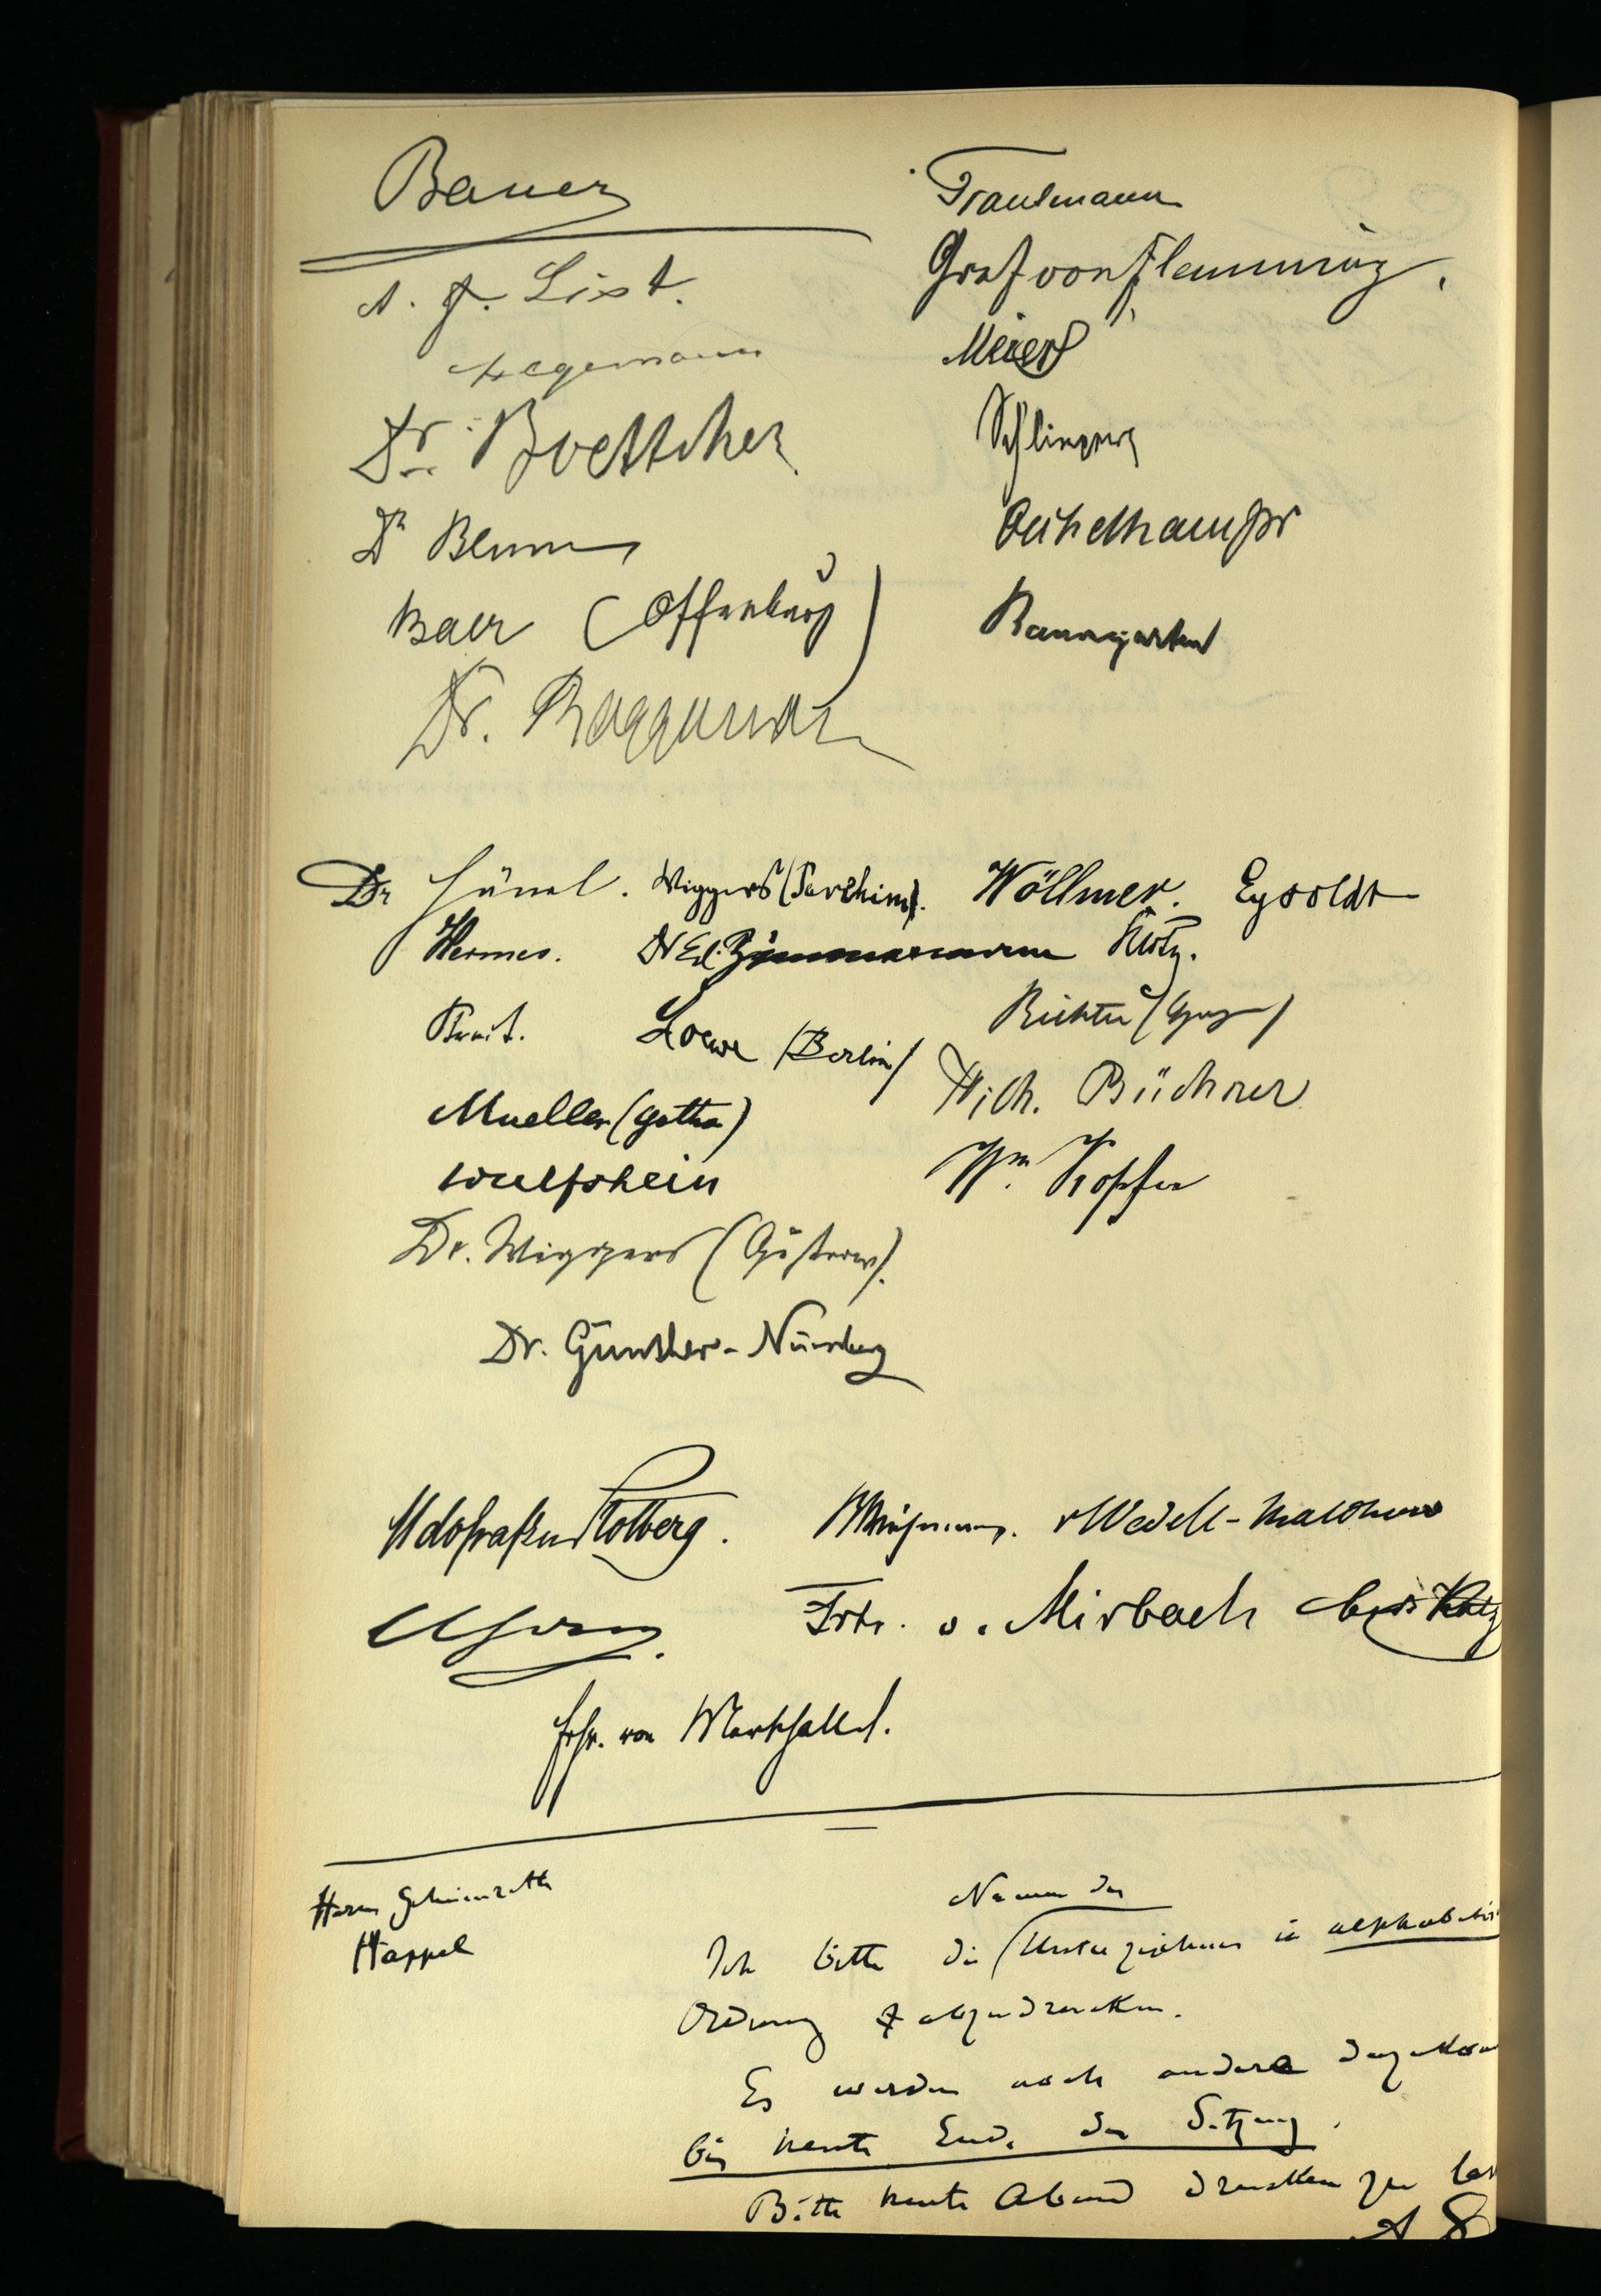 Bauer
Trautmann
A. F. List.
Graf von Flemming.
Hegemann
Meier
Dr. Boettcher
Dr Blum
Oechelhaeuser
Baer (Offenburg)
Baumgarten
Dr. Roggemann
Dr Hänel. Wiggers (Parchim). Wöllmer. Eysoldt
Hermes. Dr Ed. Zimmermann Klotz.
Streit. Loewe (Berlin) Richter (Hagen)
Mueller (Gotha) Wilh. Büchner
Wulfshein Wm.
Dr. Wiggers (Güstrow).
Dr. Günther-Nürnberg
Udo Graf zu Stolberg. vWedell-Malchow
Frhr. v. Mirbach
Frhr. von
Herrn Geheimrath
Happel
Namen der
Ich bitte die Unterzeichner in alphabetis
Ordnung abzudrucken.
Es werden noch andere dazukom
bis heute Ende der Sitzung.
Bitte heute Abend drucken zu las